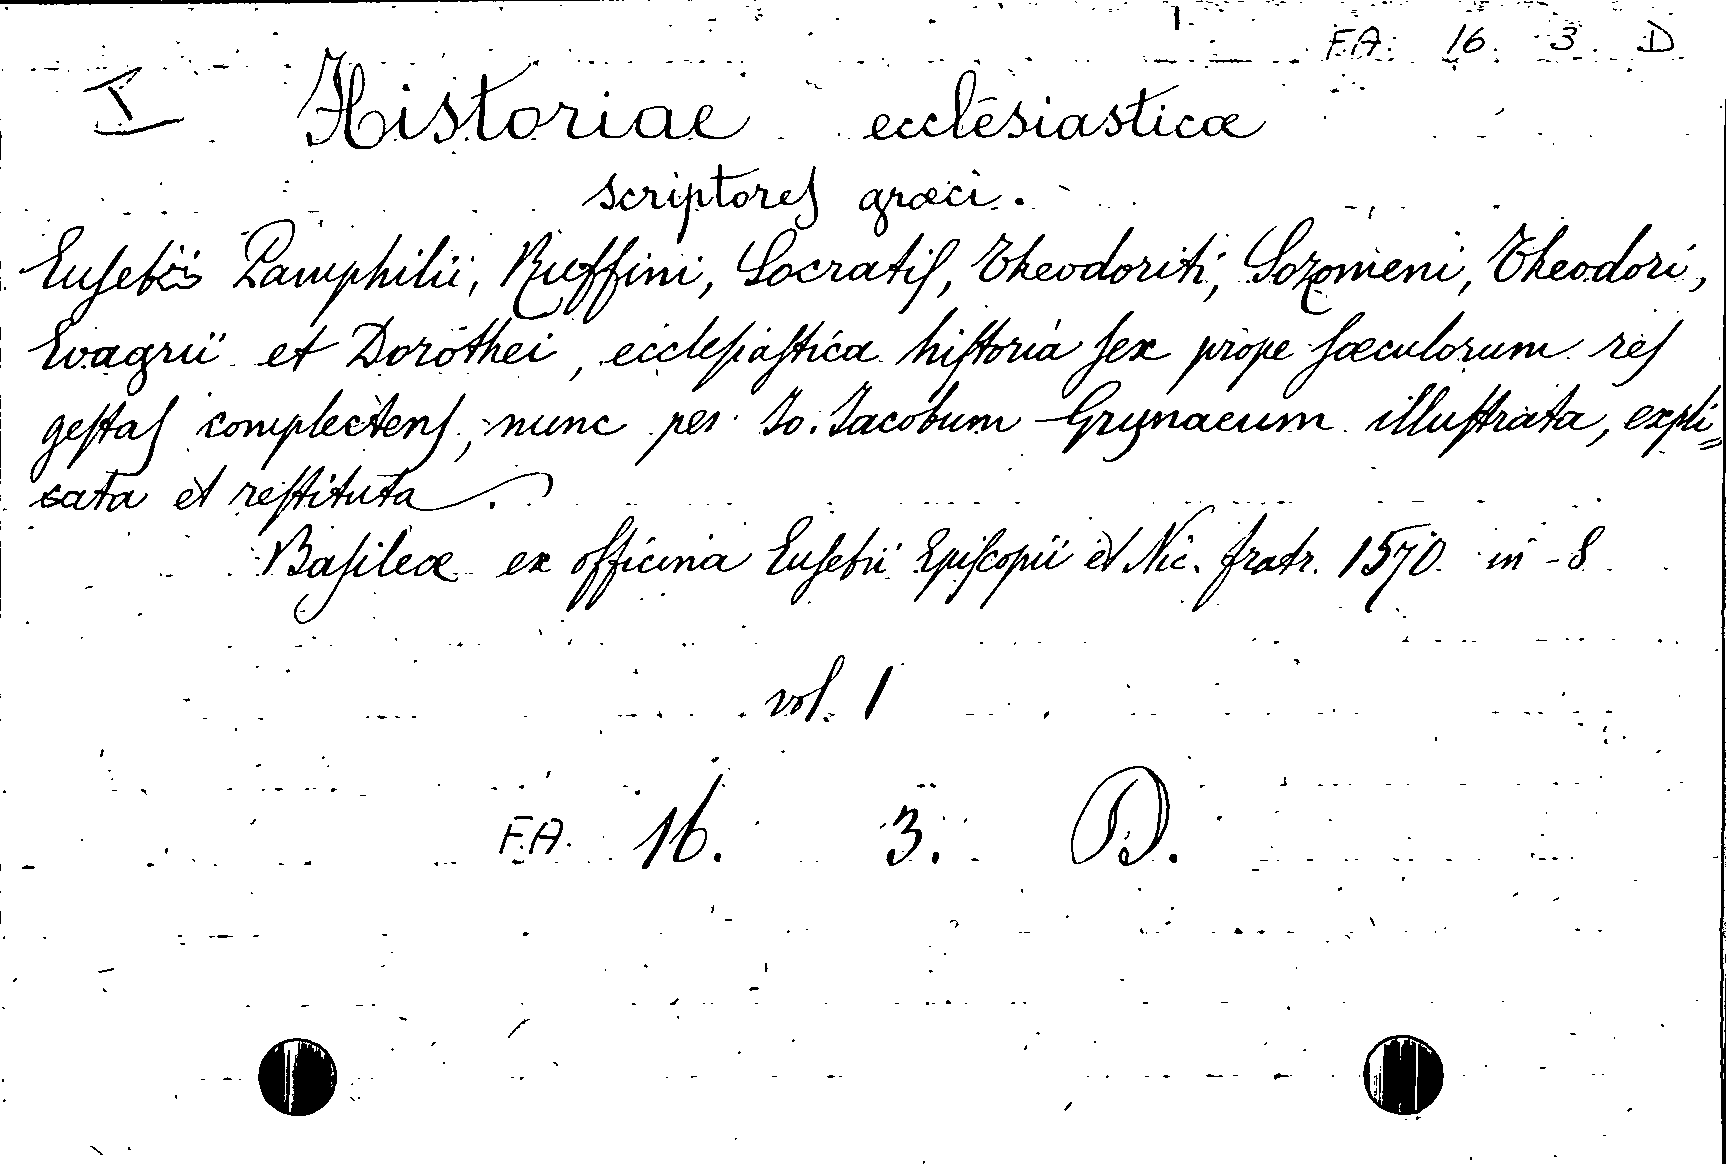 F.A. 16. 3. D
I Historiae ecclesiasticæ
scriptores græci.
Eusebii Pamphilii, Ruffini, Socratis, Theodoriti, Sozomeni, Theodori,
Evagrii et Dorothei, ecclesiastica historia sex prope sæculorum res
gestas complectens, nunc per Jo. Jacobum Grynaeum illustrata, expli=
cata et restituta.
Basileæ ex officina Eusebii Episcopii et Nic. fratr. 1570. in-8
vol. 1
F.A. 16. 3. D.